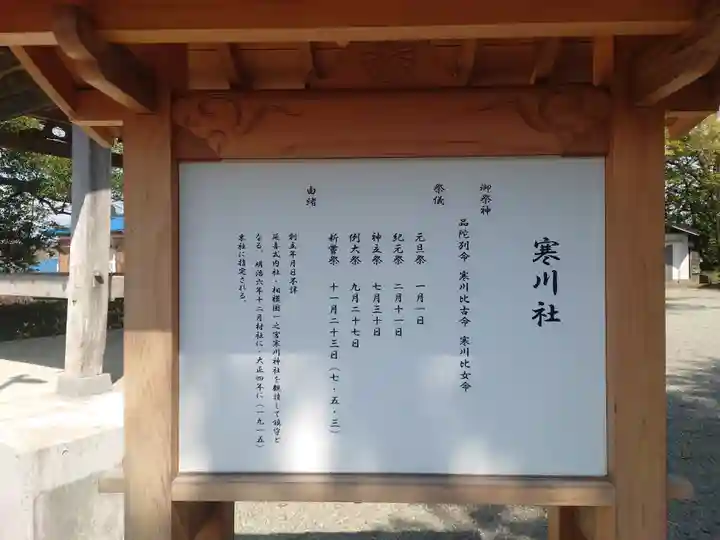 寒川社
御祭神
品陀別命 寒川比古命 寒川比女命
祭儀
元旦祭 一月一日
紀元祭 二月十一日
神立祭 七月三十日
例大祭 九月二十七日
新嘗祭 十一月二十三日(七・五・三)
由緒
創立年月日不詳
延喜式内社・相模国一之宮寒川神社を勧請して鎮守と
なる。明治六年十二月村社に・大正四年に(一九一五)
本社に指定される。